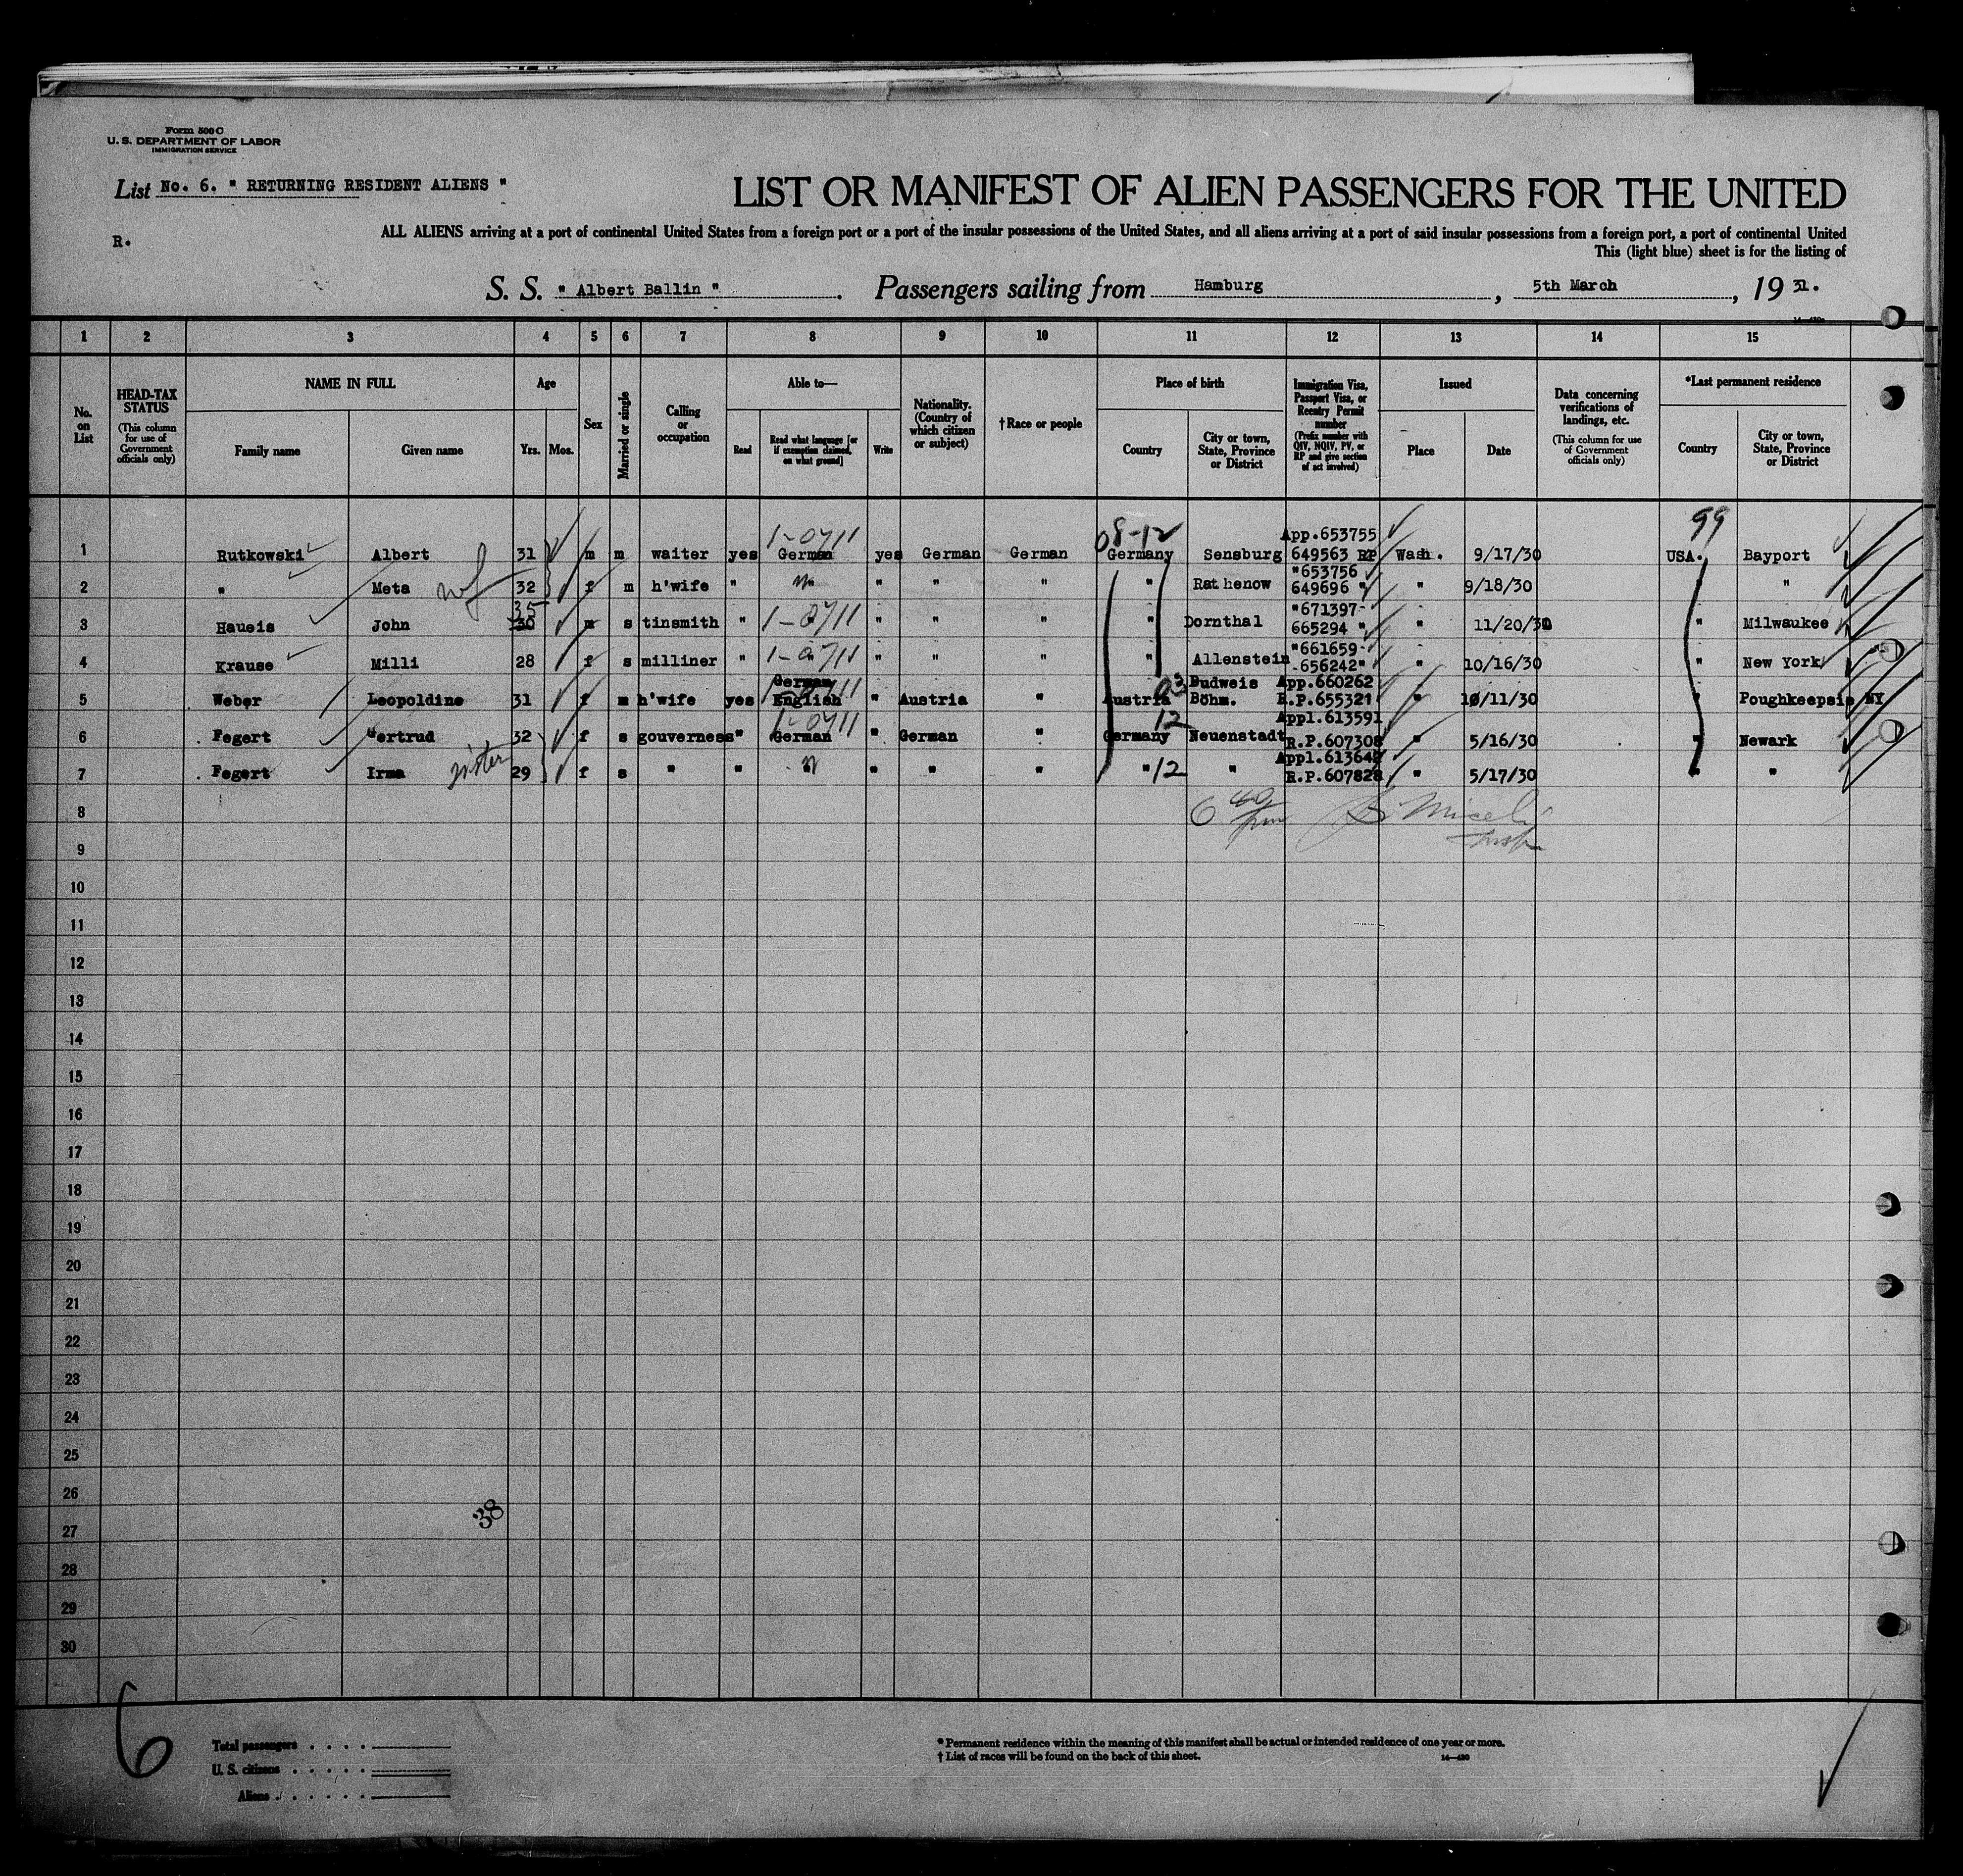 Form 500 C
U. S. DEPARTMENT OF LABOR
IMMIGRATION SERVICE
List No. 6. " RETURNING RESIDENT ALIENS "
LIST OR MANIFEST OF ALIEN PASSENGERS FOR THE UNITED
R.
ALL ALIENS arriving at a port of continental United States from a foreign port or a port of the insular possessions of the United States, and all aliens arriving at a port of said insular possessions from a foreign port, a port of continental United
This (light blue) sheet is for the listing of
S. S. " Albert Ballin " . Passengers sailing from Hamburg , 5th March , 19 31.
1 2 3 4 5 6 7 8 9 10 11 12 13 14 15
No. on List
HEAD-TAX STATUS (This column for use of Government officials only)
NAME IN FULL
Family name Given name
Age
Yrs. Mos.
Sex
Married or single
Calling or occupation
Able to—
Read Read what language [or if exemption claimed, on what ground] Write
Nationality. (Country of which citizen or subject)
†Race or people
Place of birth
Country City or town, State, Province or District
Immigration Visa, Passport Visa, or Reentry Permit number (Prefix number with QIV, NQIV, PV, or RP and give section of act involved)
Issued
Place Date
Data concerning verifications of landings, etc. (This column for use of Government officials only)
*Last permanent residence
Country City or town, State, Province or District
1-0711 08-12 App.653755 99
1 Rutkowski Albert 31 m m waiter yes German yes German German Germany Sensburg 649563 RP Wash. 9/17/30 USA. Bayport
"653756
2 " Meta wf 32 f m h'wife " " " " " " Rathenow 649696 " " 9/18/30 "
35 "671397
3 Haueis John 30 m s tinsmith " 1-0711 " " " " Dornthal 665294 " " 11/20/30 " Milwaukee
"661659
4 Krause Milli 28 f s milliner " 1-0711 " " " " Allenstein 656242" " 10/16/30 " New York
German 1-0711 03 Budweis App.660262
5 Weber Leopoldine 31 f m h'wife yes English " Austria " Austria Böhm. R.P.655321 " 10/11/30 " Poughkeepsie NY
1-0711 12 Appl.613591
6 Fegert Gertrud 32 f s gouverness " German " German " Germany Neuenstadt R.P.607308 " 5/16/30 " Newark
Appl.613647
7 Fegert Irma sister 29 f s " " " " " " " 12 " R.P.607828 " 5/17/30 " "
8 6 40 pm Miceli Insp
9
10
11
12
13
14
15
16
17
18
19
20
21
22
23
24
25
26
38
27
28
29
30
6
Total passengers . . . .
U. S. citizens . . . . .
Aliens . . . . . .
* Permanent residence within the meaning of this manifest shall be actual or intended residence of one year or more.
† List of races will be found on the back of this sheet. 14—430